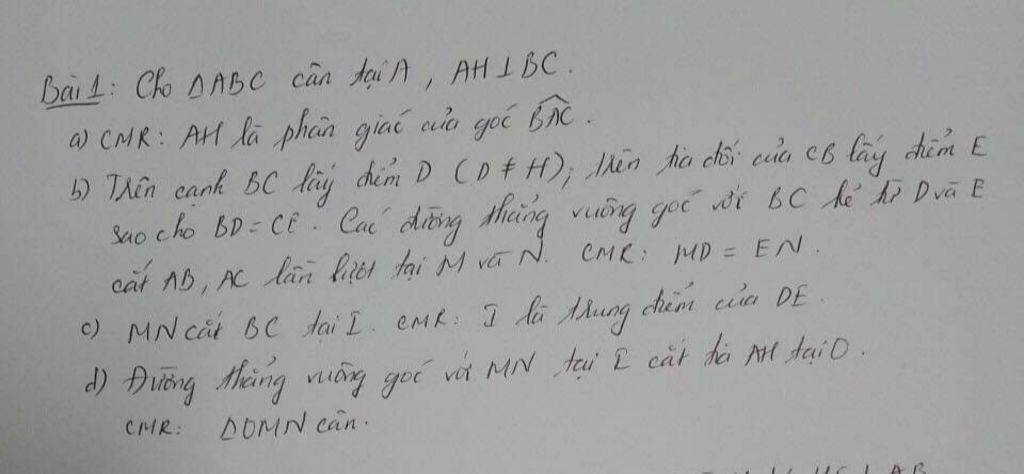 Bài 1: Cho ΔABC cân tại A, AH⊥BC.
a) CMR: AH là phân giác của góc BAC.
b) Trên cạnh BC lấy điểm D (D ≠ H); trên tia đối của CB lấy điểm E
sao cho BD = CE. Các đường thẳng vuông góc với BC kẻ từ D và E
cắt AB, AC lần lượt tại M và N. CMR: MD = EN.
c) MN cắt BC tại I. CMR: I là trung điểm của DE.
d) Đường thẳng vuông góc với MN tại I cắt tia AH tại O.
CMR: ΔOMN cân.